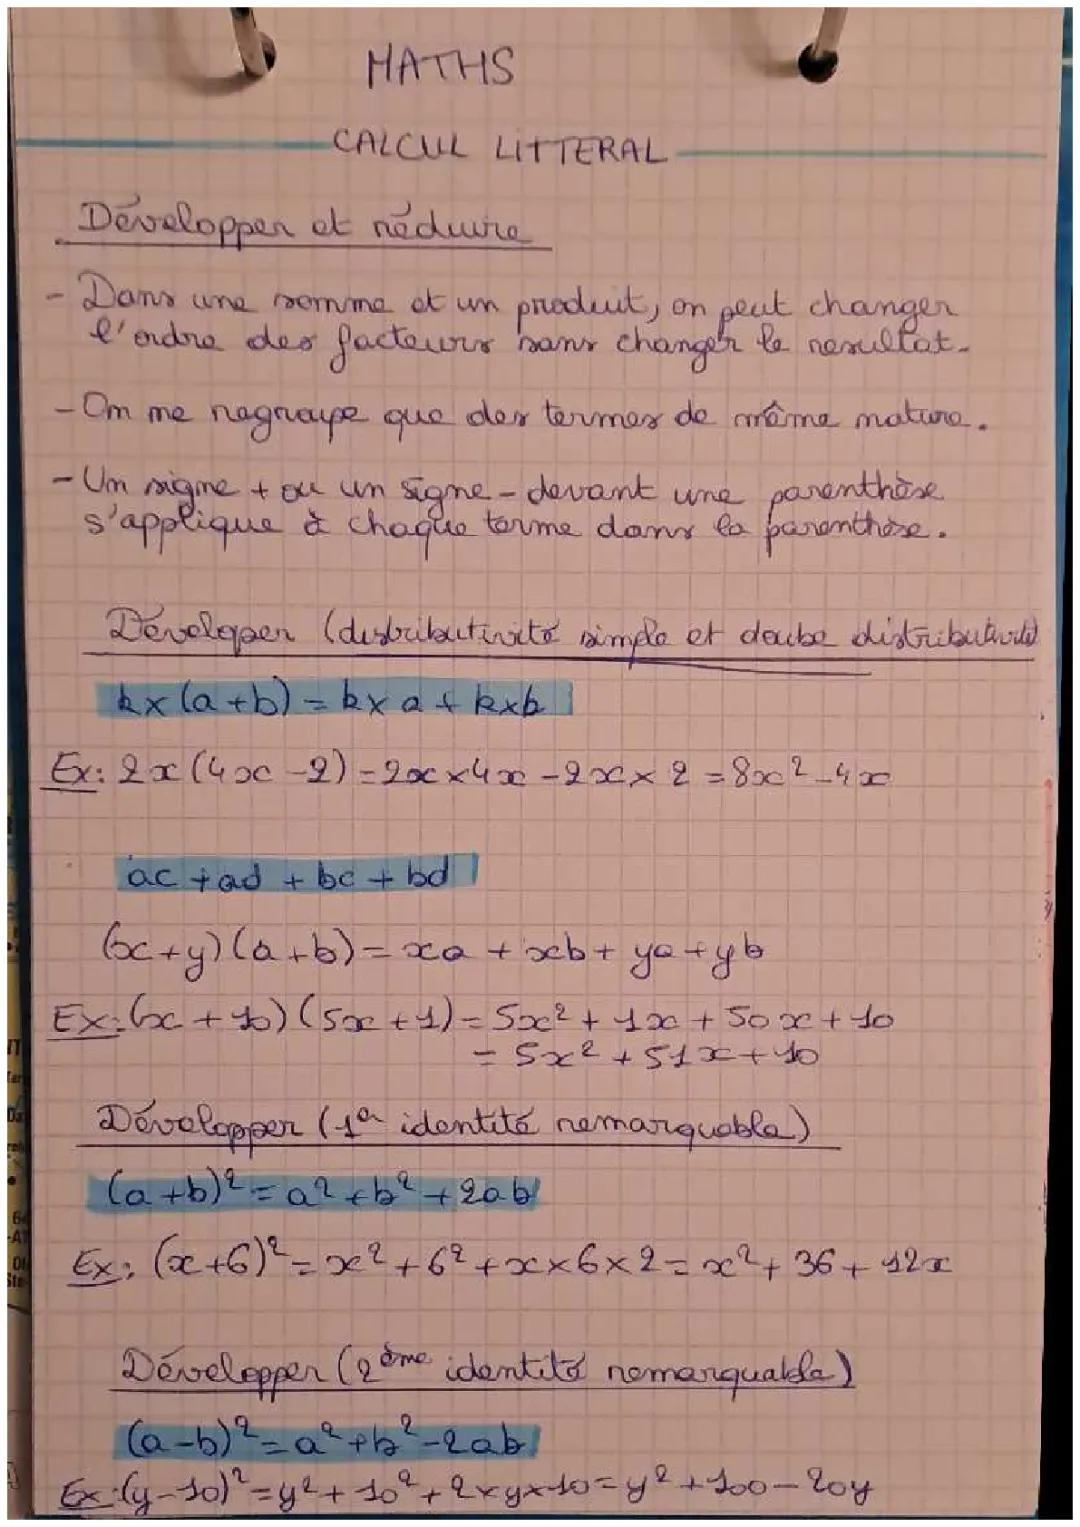 MATHS
CALCUL LITTERAL
Développer et réduire
- Dans une somme et un produit, on peut changer
l'ordre des facteurs sans changer le resultat.
- On ne regroupe que des termes de même nature.
- Un signe + ou un signe - devant une parenthèse
s'applique à chaque terme dans la parenthèse.
Déveloper (distributivité simple et deube distributivité)
k×(a+b) = k×a + k×b
Ex: 2x(4x-2) = 2x×4x - 2x×2 = 8x² - 4x
ac + ad + bc + bd
(x+y)(a+b) = xa + xb + ya + yb
Ex: (x + 10)(5x + 1) = 5x² + 1x + 50x + 10
= 5x² + 51x + 10
Développer (1er identité remarquable)
(a+b)² = a² + b² + 2ab
Ex: (x+6)² = x² + 6² + x×6×2 = x² + 36 + 12x
Développer (2ème identité remarquable)
(a-b)² = a² + b² - 2ab
Ex: (y-10)² = y² + 10² + 2×y×10 = y² + 100 - 20y